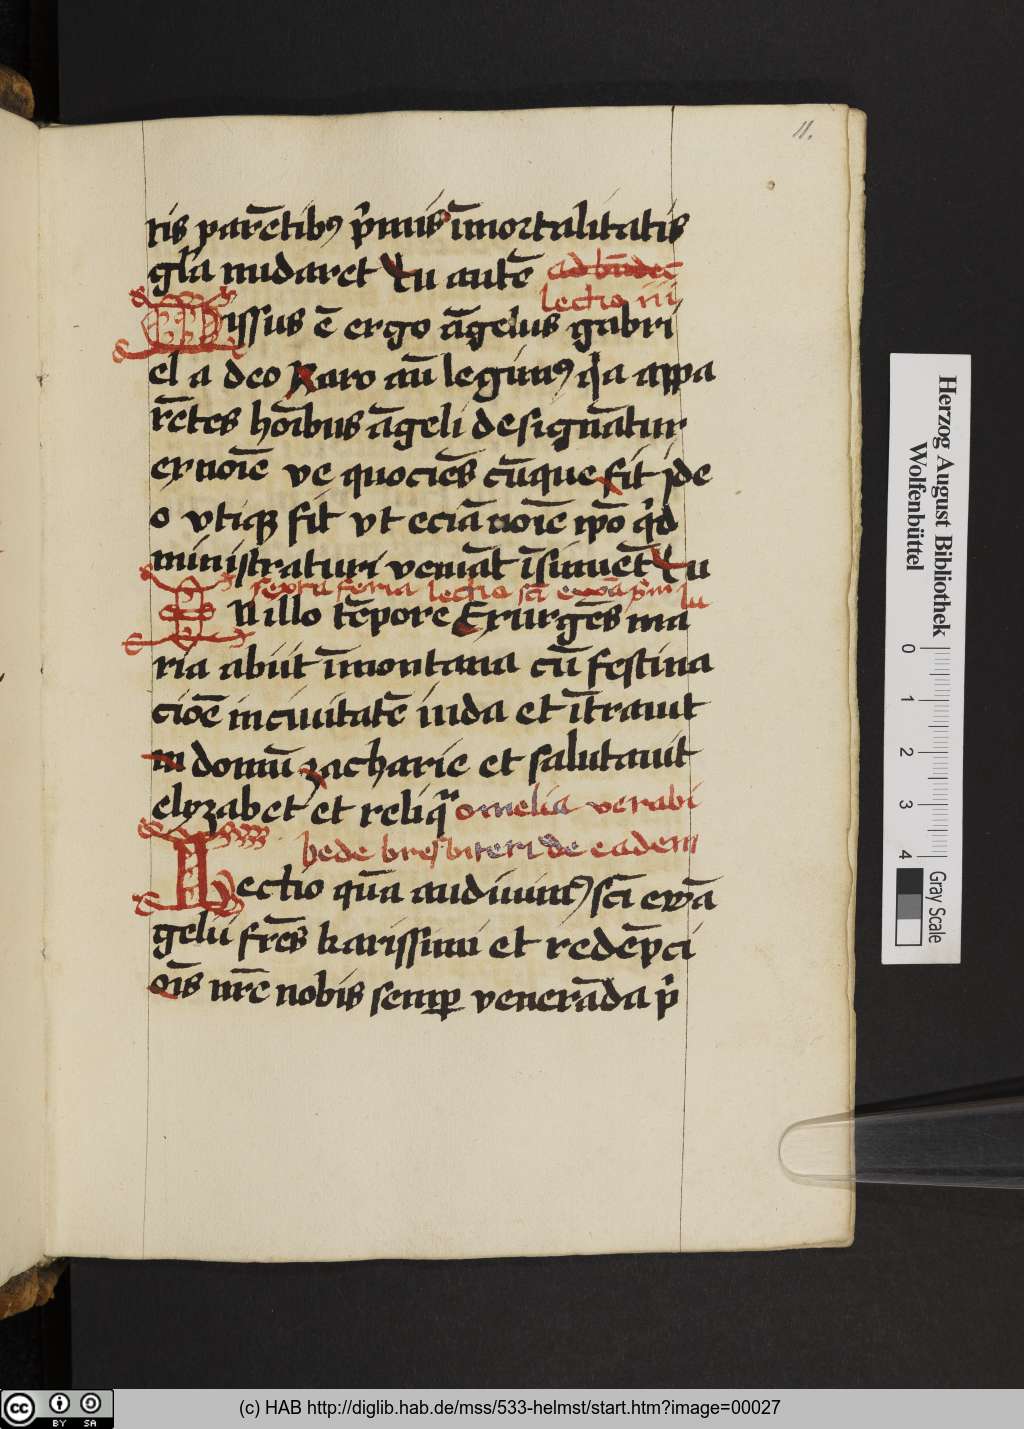 11.
ris parētibꝯ p̄mis īmortalitatis
gl̄a nudaret Tu autē
lectio iii
Missus ē ergo āgelus gabri
el a deo Raro aū legimꝯ q̄a appa
rētes hoībus āgeli designātur
ex noīe ve quociēs cūque fit ide
o vtiqꝫ fit vt eciā noīe ip̄o q̄d
ministraturi veniāt īsinuēt Tu
sexta feria lectio sc̄i
IN illo tēpore Exurgēs ma
ria abiit īmontana cū festina
cioē in ciuitatē iuda et ītrauit
in domū zacharie et salutauit
elyzabet et reliqͣ omelia verabi
bede bresbiteri de eadem
Lectio quā audiuimꝯ sc̄i ewā
gelii fr̄es karissimi et redēpci
oīs nr̄e nobis semꝑ venerāda p̄
Herzog August Bibliothek
Wolfenbüttel
0 1 2 3 4
Gray Scale
cc BY SA
(c) HAB http://diglib.hab.de/mss/533-helmst/start.htm?image=00027